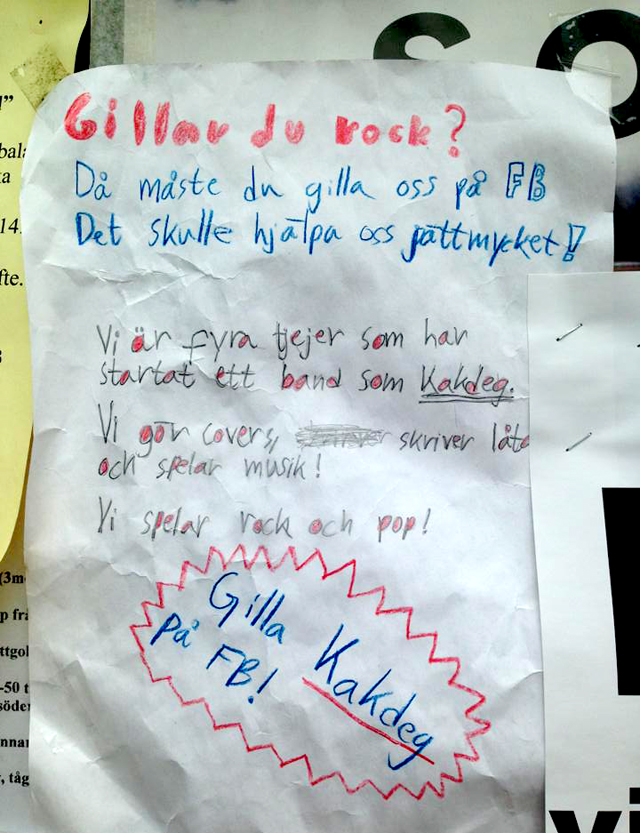 Gillar du rock?
Då måste du gilla oss på FB
Det skulle hjälpa oss jättmycket!
Vi är fyra tjejer som har
startat ett band som Kakdeg.
Vi gör covers, skriver låta
och spelar musik!
Vi spelar rock och pop!
Gilla Kakdeg
på FB!
14.
fte.
(3m
p frå
ttgol
-50 t
söder
nnar
, tåg
s o
vi